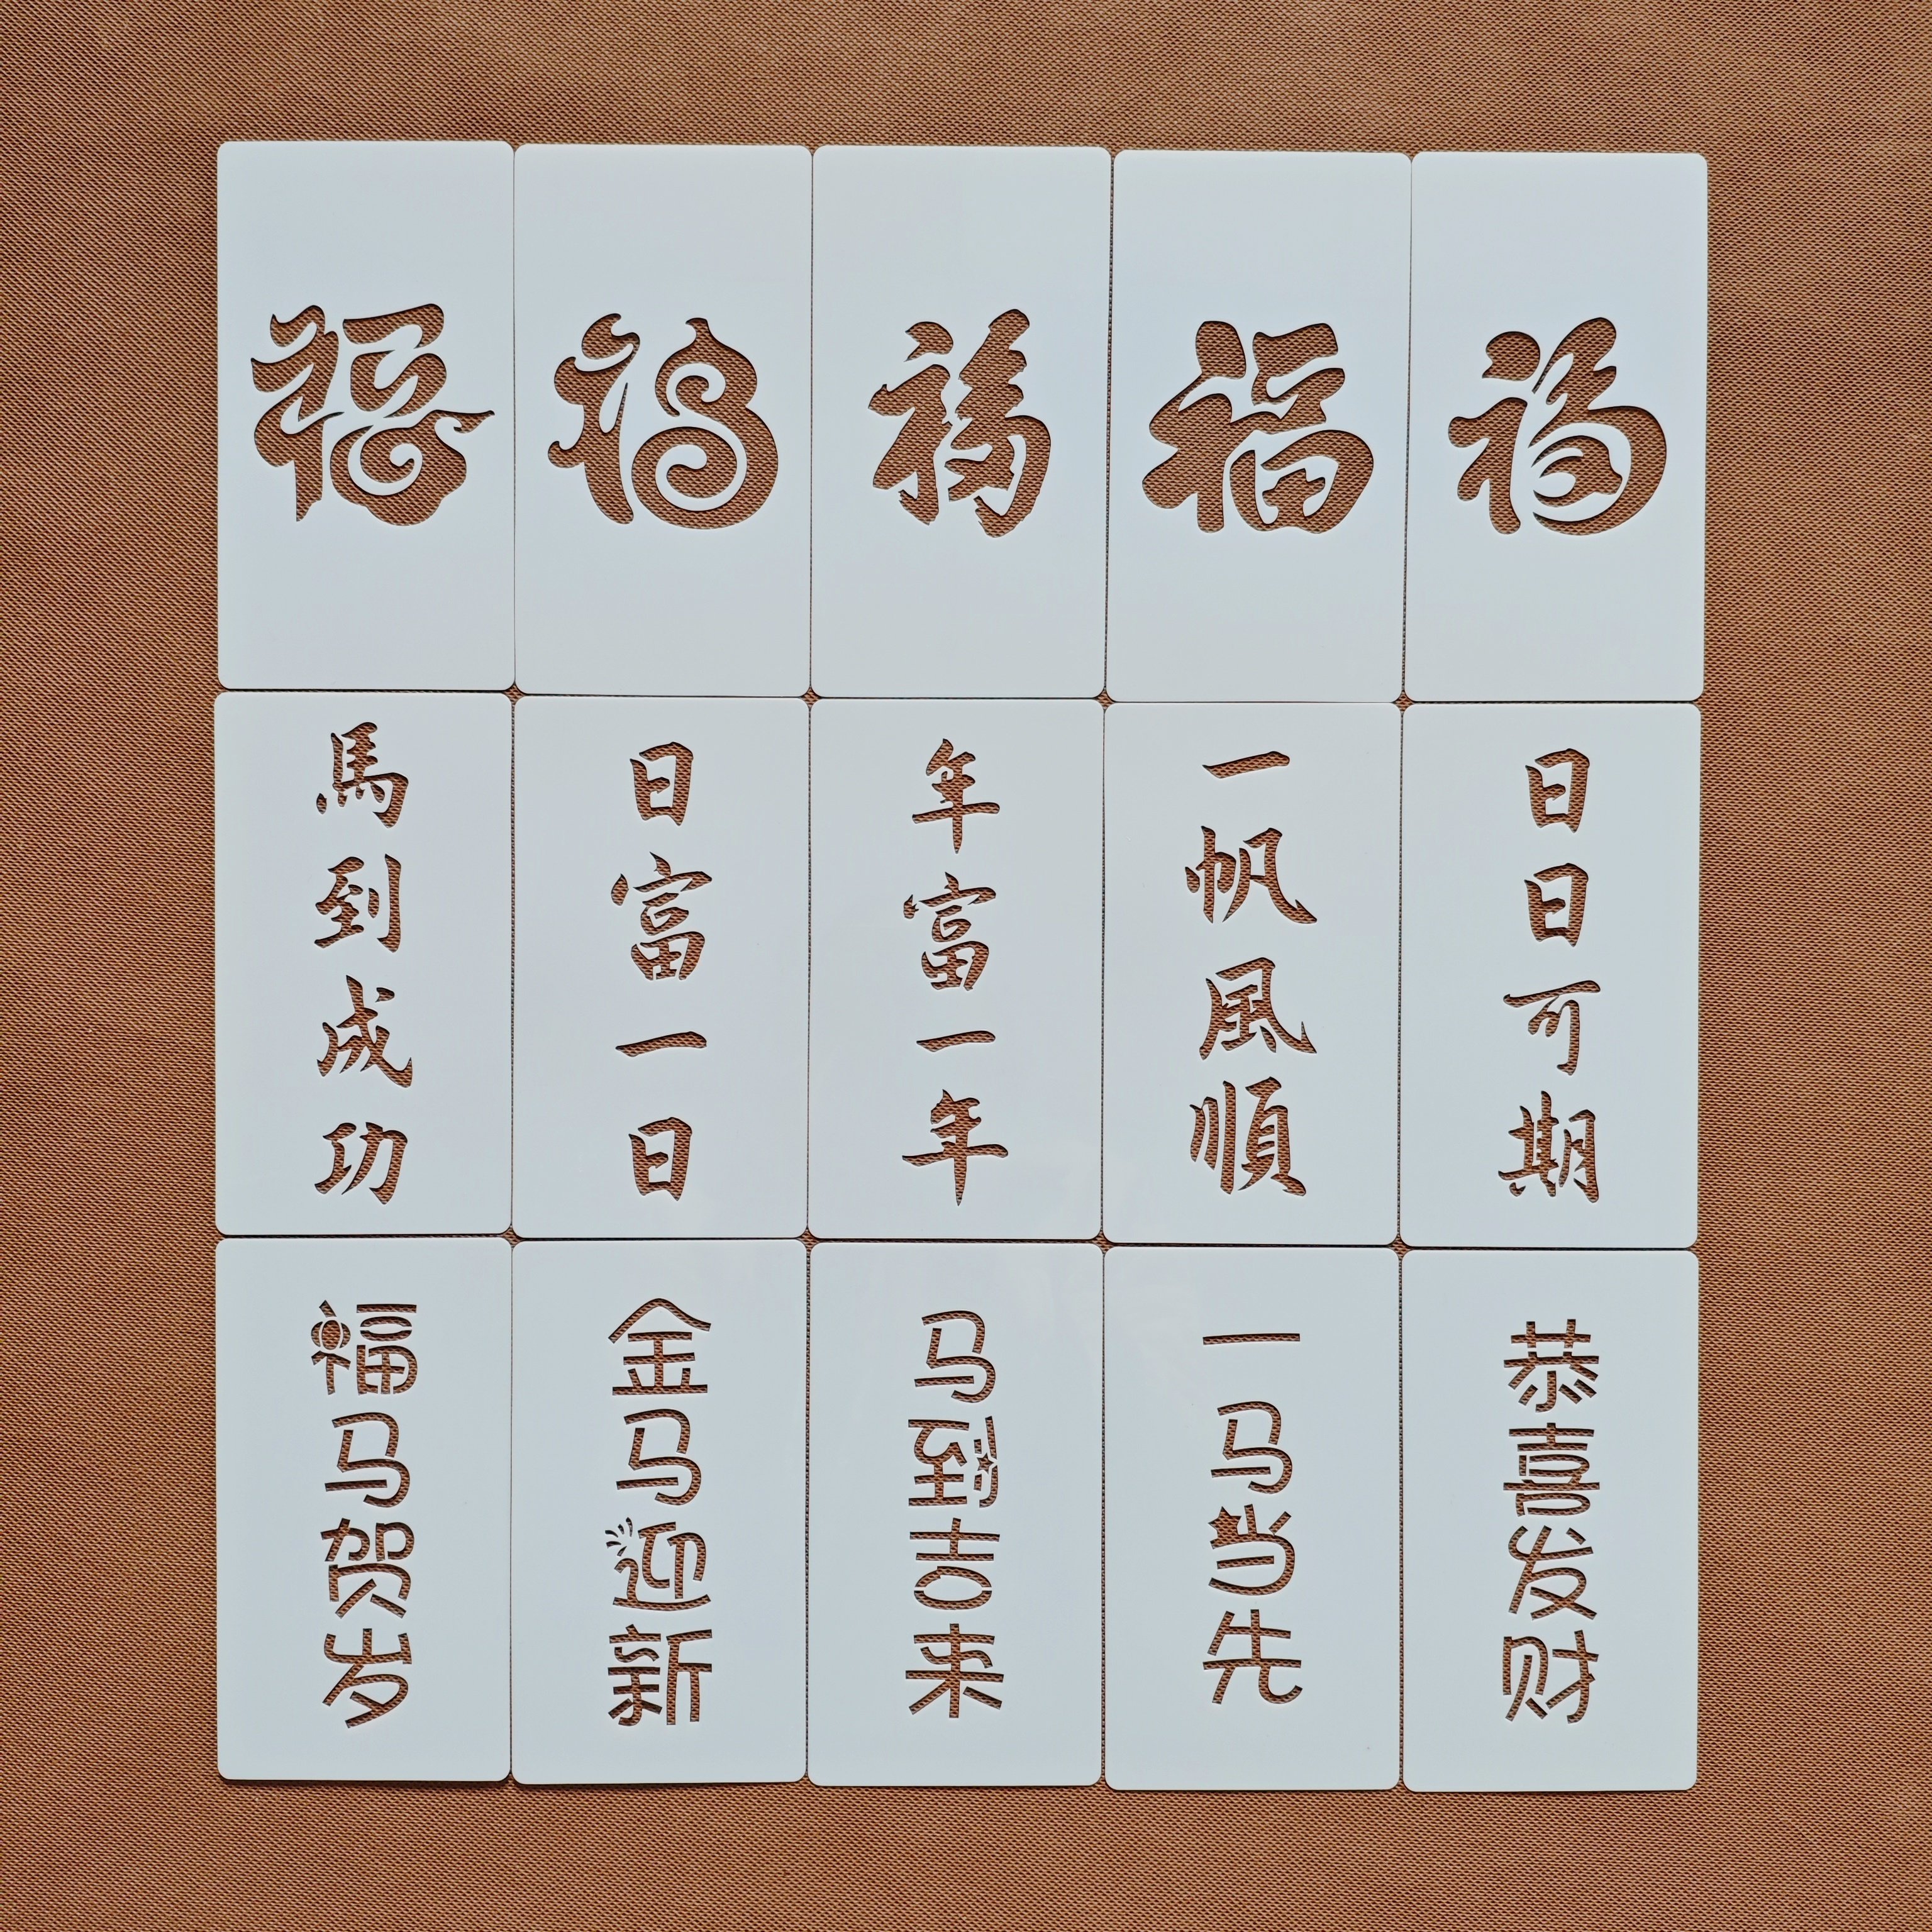 福
福
福
福
福
馬到成功
日富一日
年富一年
一帆風順
日日可期
福马贺岁
金马迎新
马到吉来
一马当先
恭喜发财